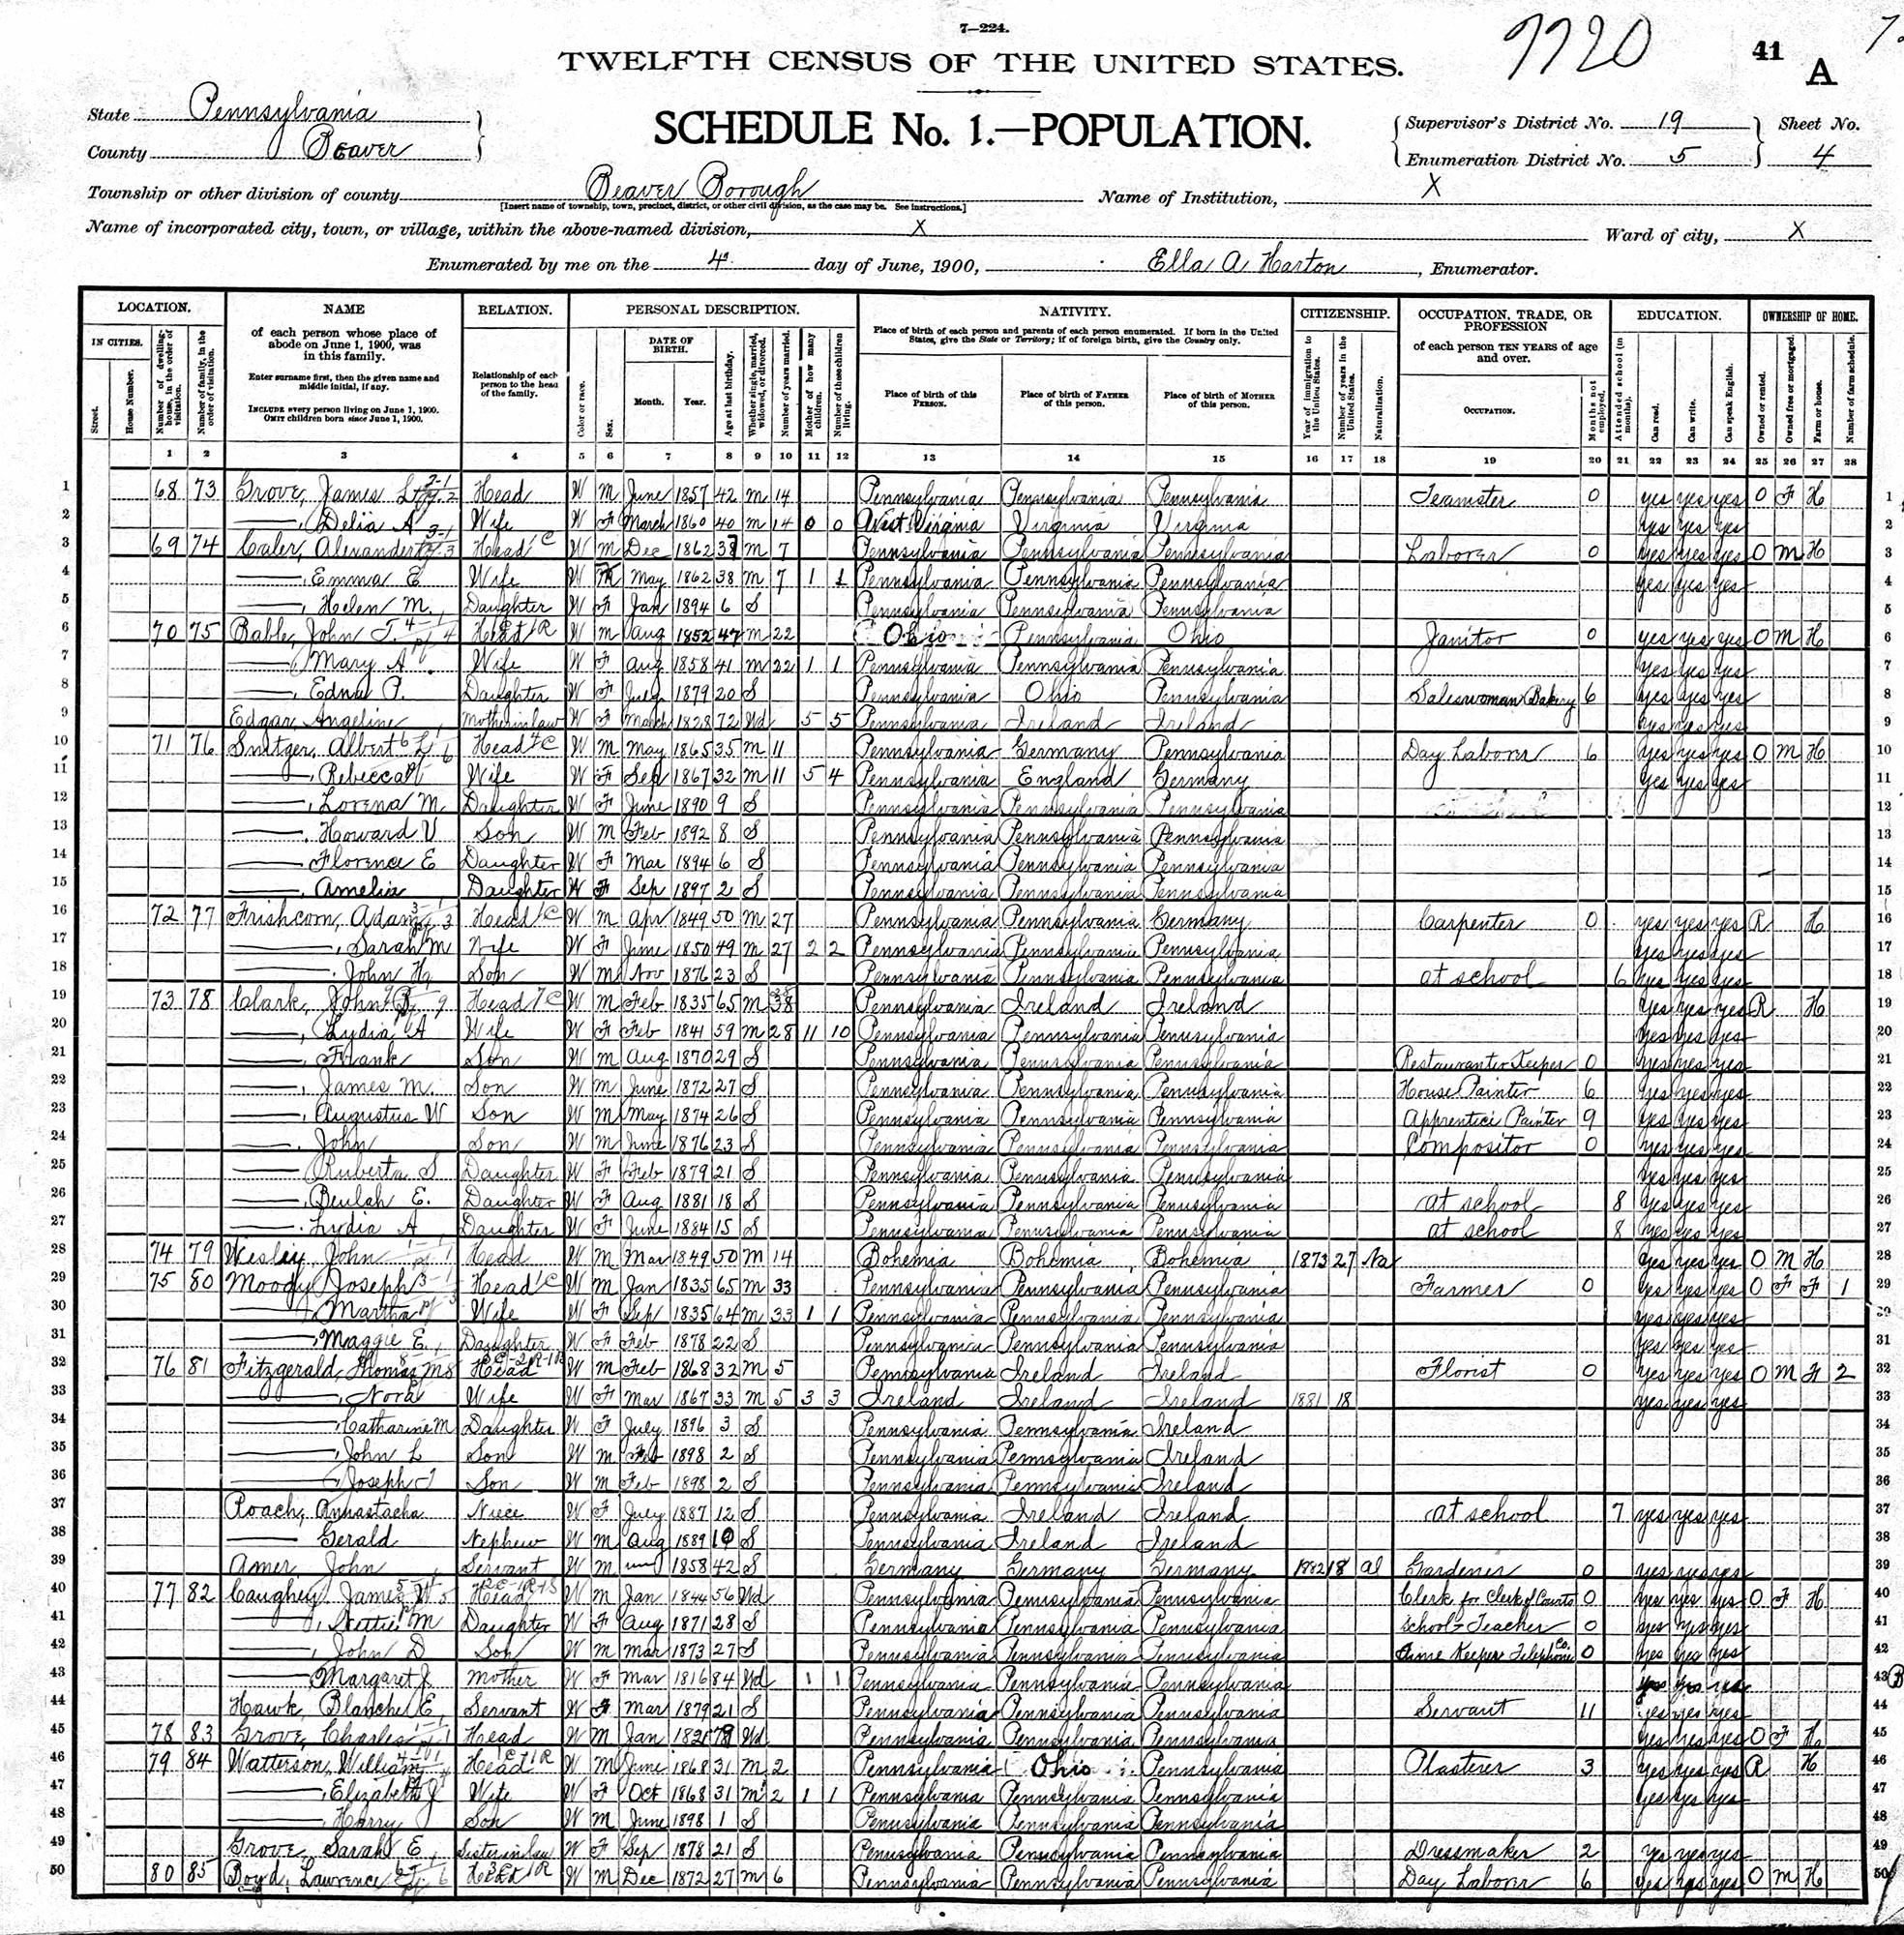 7—224.
7720
41
A
TWELFTH CENSUS OF THE UNITED STATES.
State Pennsylvania
County Beaver
SCHEDULE No. 1.—POPULATION.
Supervisor's District No. 19
Enumeration District No. 5
Sheet No.
4
Township or other division of county Beaver Borough
[Insert name of township, town, precinct, district, or other civil division, as the case may be. See instructions.]
Name of Institution, X
Name of incorporated city, town, or village, within the above-named division, X
Ward of city, X
Enumerated by me on the 4 day of June, 1900, Ella A Harton, Enumerator.
LOCATION. NAME RELATION. PERSONAL DESCRIPTION. NATIVITY. CITIZENSHIP. OCCUPATION, TRADE, OR PROFESSION EDUCATION. OWNERSHIP OF HOME.
IN CITIES.
Street.
House Number.
Number of dwelling-house, in the order of visitation.
Number of family, in the order of visitation.
of each person whose place of abode on June 1, 1900, was in this family.
Enter surname first, then the given name and middle initial, if any.
INCLUDE every person living on June 1, 1900.
OMIT children born since June 1, 1900.
Relationship of each person to the head of the family.
Color or race.
Sex.
DATE OF BIRTH.
Month. Year.
Age at last birthday.
Whether single, married, widowed, or divorced.
Number of years married.
Mother of how many children.
Number of these children living.
Place of birth of each person and parents of each person enumerated. If born in the United States, give the State or Territory; if of foreign birth, give the Country only.
Place of birth of this PERSON.
Place of birth of FATHER of this person.
Place of birth of MOTHER of this person.
Year of immigration to the United States.
Number of years in the United States.
Naturalization.
of each person TEN YEARS of age and over.
OCCUPATION.
Months not employed.
Attended school (in months).
Can read.
Can write.
Can speak English.
Owned or rented.
Owned free or mortgaged.
Farm or house.
Number of farm schedule.
1 2 3 4 5 6 7 8 9 10 11 12 13 14 15 16 17 18 19 20 21 22 23 24 25 26 27 28
1 68 73 Grove, James Head W M June 1857 42 M 14 Pennsylvania Pennsylvania Pennsylvania Teamster 0 yes yes yes O F H 1
2 —, Delia A Wife W F March 1860 40 M 14 0 0 West Virginia Virginia Virginia yes yes yes 2
3 69 74 Caler, Alexander Head W M Dec 1862 37 M 7 Pennsylvania Pennsylvania Pennsylvania Laborer 0 yes yes yes O M H 3
4 —, Emma E Wife W May 1862 38 M 7 1 1 Pennsylvania Pennsylvania Pennsylvania yes yes yes 4
5 —, Helen M. Daughter W F Jan 1894 6 S Pennsylvania Pennsylvania Pennsylvania 5
6 70 75 Babb, John T. Head W M Aug 1852 47 M 22 Ohio Pennsylvania Ohio Janitor 0 yes yes yes O M H 6
7 —, Mary A Wife W F Aug 1858 41 M 22 1 1 Pennsylvania Pennsylvania Pennsylvania yes yes yes 7
8 —, Edna P. Daughter W F July 1879 20 S Pennsylvania Ohio Pennsylvania Saleswoman Bakery 6 yes yes yes 8
9 Edgar, Angeline Mother in law W F March 1828 72 Wd 5 5 Pennsylvania Ireland Ireland yes yes yes 9
10 71 76 Snitger, Albert L Head W M May 1865 35 M 11 Pennsylvania Germany Pennsylvania Day Laborer 6 yes yes yes O M H 10
11 —, Rebecca Wife W F Sep 1867 32 M 11 5 4 Pennsylvania England Germany yes yes yes 11
12 —, Lorena M. Daughter W F June 1890 9 S Pennsylvania Pennsylvania Pennsylvania 12
13 —, Howard V Son W M Feb 1892 8 S Pennsylvania Pennsylvania Pennsylvania 13
14 —, Florence E Daughter W F Mar 1894 6 S Pennsylvania Pennsylvania Pennsylvania 14
15 —, Amelia Daughter W F Sep 1897 2 S Pennsylvania Pennsylvania Pennsylvania 15
16 72 77 Frishcorn, Adam Head W M Apr 1849 50 M 27 Pennsylvania Pennsylvania Germany Carpenter 0 yes yes yes R H 16
17 —, Sarah M Wife W F June 1850 49 M 27 2 2 Pennsylvania Pennsylvania Pennsylvania yes yes yes 17
18 —, John H. Son W M Nov 1876 23 S Pennsylvania Pennsylvania Pennsylvania at school 6 yes yes yes 18
19 73 78 Clark, John Head W M Feb 1835 65 M 38 Pennsylvania Ireland Ireland yes yes yes R H 19
20 —, Lydia A Wife W F Feb 1841 59 M 28 11 10 Pennsylvania Pennsylvania Pennsylvania yes yes yes 20
21 —, Frank Son W M Aug 1870 29 S Pennsylvania Pennsylvania Pennsylvania Restauranter Keeper 0 yes yes yes 21
22 —, James M. Son W M June 1872 27 S Pennsylvania Pennsylvania Pennsylvania House Painter 6 yes yes yes 22
23 —, Augustus W Son W M May 1874 26 S Pennsylvania Pennsylvania Pennsylvania Apprentice Painter 9 yes yes yes 23
24 —, John Son W M June 1876 23 S Pennsylvania Pennsylvania Pennsylvania Compositor 0 yes yes yes 24
25 — Ruberta S Daughter W F Feb 1879 21 S Pennsylvania Pennsylvania Pennsylvania yes yes yes 25
26 —, Beulah E. Daughter W F Aug 1881 18 S Pennsylvania Pennsylvania Pennsylvania at school 8 yes yes yes 26
27 —, Lydia A Daughter W F June 1884 15 S Pennsylvania Pennsylvania Pennsylvania at school 8 yes yes yes 27
28 74 79 Wesley, John Head W M Mar 1849 50 M 14 Bohemia Bohemia Bohemia 1873 27 Na yes yes yes O M H 28
29 75 80 Moody Joseph Head W M Jan 1835 65 M 33 Pennsylvania Pennsylvania Pennsylvania Farmer 0 yes yes yes O F F 1 29
30 —, Martha Wife W F Sep 1835 64 M 33 1 1 Pennsylvania Pennsylvania Pennsylvania yes yes yes 30
31 —, Maggie E, Daughter W F Feb 1878 22 S Pennsylvania Pennsylvania Pennsylvania yes yes yes 31
32 76 81 Fitzgerald, Thomas M Head W M Feb 1868 32 M 5 Pennsylvania Ireland Ireland Florist 0 yes yes yes O M F 2 32
33 —, Nora Wife W F Mar 1867 33 M 5 3 3 Ireland Ireland Ireland 1881 18 yes yes yes 33
34 —, Catharine M Daughter W F July 1896 3 S Pennsylvania Pennsylvania Ireland 34
35 —, John L Son W M Feb 1898 2 S Pennsylvania Pennsylvania Ireland 35
36 —, Joseph T Son W M Feb 1898 2 S Pennsylvania Pennsylvania Ireland 36
37 Roach, Annastacha Niece W F July 1887 12 S Pennsylvania Ireland Ireland at school 7 yes yes yes 37
38 — Gerald Nephew W M Aug 1889 10 S Pennsylvania Ireland Ireland 38
39 Amer, John Servant W M 1858 42 S Germany Germany Germany 1882 18 Al Gardener 0 yes yes yes 39
40 77 82 Caughey, James W Head W M Jan 1844 56 Wd Pennsylvania Pennsylvania Pennsylvania Clerk for Clerk of Courts 0 yes yes yes O F H 40
41 —, Nettie M Daughter W F Aug 1871 28 S Pennsylvania Pennsylvania Pennsylvania School-Teacher 0 yes yes yes 41
42 —, John D Son W M Mar 1873 27 S Pennsylvania Pennsylvania Pennsylvania Time Keeper Telephone Co. 0 yes yes yes 42
43 —, Margaret J Mother W F Mar 1816 84 Wd 1 1 Pennsylvania Pennsylvania Pennsylvania yes yes yes 43
44 Hawk, Blanche E, Servant W F Mar 1879 21 S Pennsylvania Pennsylvania Pennsylvania Servant 11 yes yes yes 44
45 78 83 Grove, Charles Head W M Jan Wd Pennsylvania Pennsylvania Pennsylvania yes yes yes O F H 45
46 79 84 Watterson, William Head W M June 1868 31 M 2 Pennsylvania Ohio Pennsylvania Plasterer 3 yes yes yes R H 46
47 —, Elizabeth J Wife W F Oct 1868 31 M 2 1 1 Pennsylvania Pennsylvania Pennsylvania yes yes yes 47
48 —, Harry Son W M June 1898 1 S Pennsylvania Pennsylvania Pennsylvania 48
49 Grove, Sarah E, Sister in law W F Sep 1878 21 S Pennsylvania Pennsylvania Pennsylvania Dressmaker 2 yes yes yes 49
50 80 85 Boyd, Lawrence Head W M Dec 1872 27 M 6 Pennsylvania Pennsylvania Pennsylvania Day Laborer 6 yes yes yes O M H 50